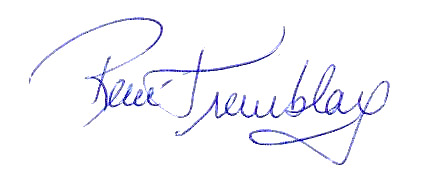 René Tremblay